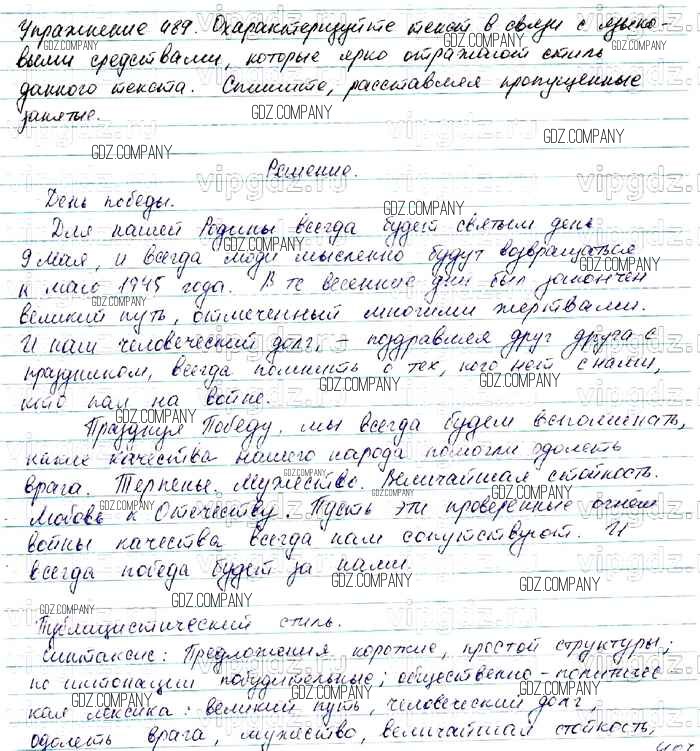 Упражнение 489. Охарактеризуйте текст в связи с языко-
выми средствами, которые ярко отражают стиль
данного текста. Спишите, расставляя пропущенные
запятые.
Решение.
День победы.
Для нашей Родины всегда будет святым день
9 Мая, и всегда люди мысленно будут возвращаться
к маю 1945 года. В те весенние дни был закончен
великий путь, отмеченный многими жертвами.
И наш человеческий долг, – поздравляя друг друга с
праздником, всегда помнить о тех, кого нет с нами,
кто пал на войне.
Празднуя Победу, мы всегда будем вспоминать,
какие качества нашего народа помогли одолеть
врага. Терпенье. Мужество. Величайшая стойкость.
Любовь к Отечеству. Пусть эти проверенные огнём
войны качества всегда нам сопутствуют. И
всегда победа будет за нами.
Публицистический стиль.
Синтаксис: Предложения короткие, простой структуры;
по интонации побудительные; общественно-политичес-
кая лексика: великий путь, человеческий долг,
одолеть врага, мужество, величайшая стойкость,
GDZ.COMPANY
vipgdz.ru